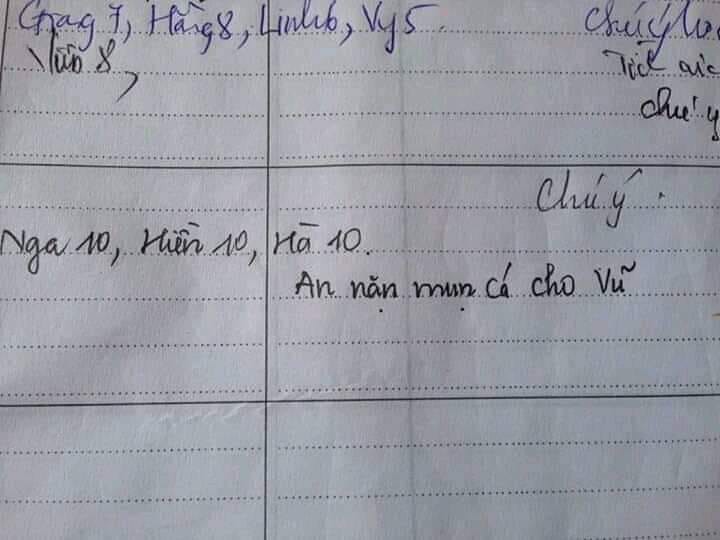 Giag 7, Hằng 8, Linh 6, Vy 5. Chú ý
8,
Tích
chú ý
Chú ý.
Nga 10, Hiền 10, Hà 10.
An nặn mụn cá cho Vũ